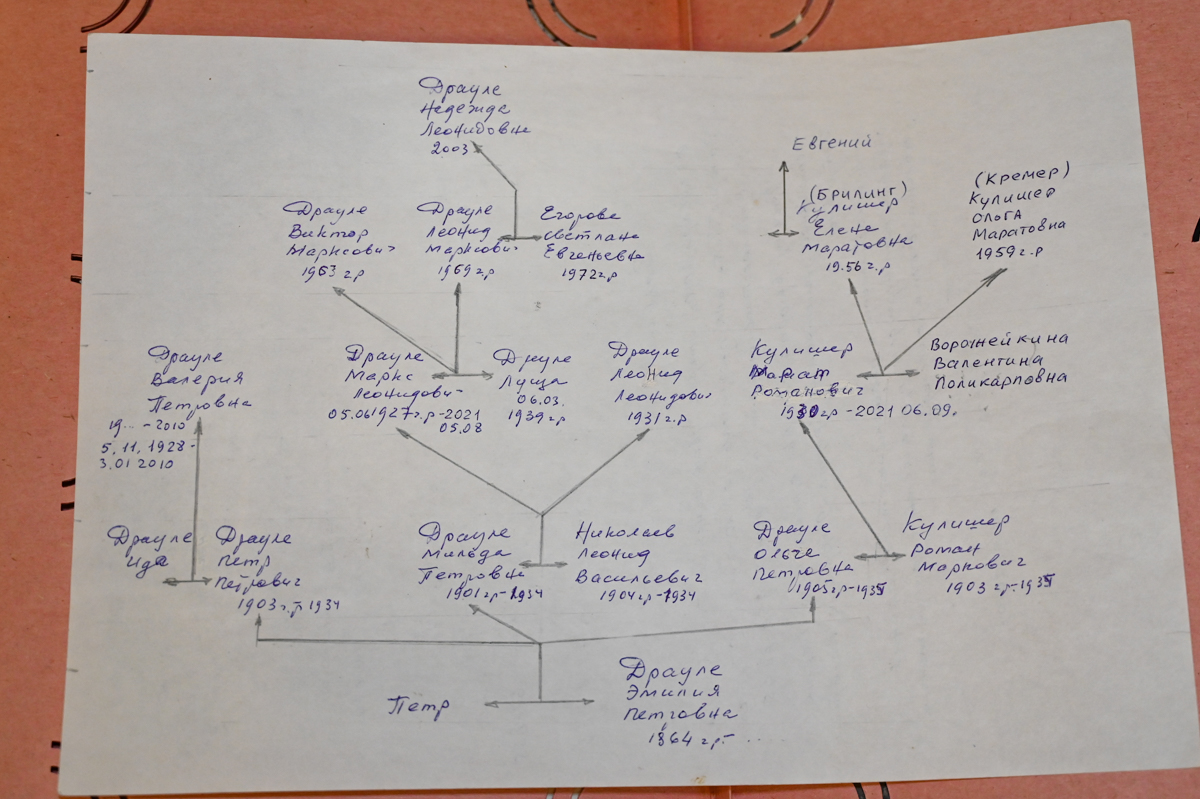 Драуле
Надежда
Леонидовна
2003
Евгений
(Брилинг)
Кулишер
Елена
Маратовна
1956 г.р
(Кремер)
Кулишер
Ольга
Маратовна
1959 г.р
Драуле
Виктор
Марксович
1963 г.р
Драуле
Леонид
Марксович
1969 г.р
Егорова
Светлана
Евгеньевна
1972 г.р
Драуле
Валерия
Петровна
19... - 2010
5.11.1928 -
3.01 2010
Драуле
Маркс
Леонидович
05.06 1927 г.р - 2021
05.08
Драуле
Луща
06.03.
1939 г.р
Драуле
Леонид
Леонидович
1931 г.р
Кулишер
Марат
Романович
1930 г.р - 2021 06.09.
Ворожейкина
Валентина
Поликарповна
Драуле
Ида
Драуле
Петр
Петрович
1903 г.р - 1934
Драуле
Мильда
Петровна
1901 г.р - 1934
Николаев
Леонид
Васильевич
1904 г.р - 1934
Драуле
Ольга
Петровна
1905 г.р - 1935
Кулишер
Роман
Маркович
1903 г.р - 1935
Петр
Драуле
Эмилия
Петровна
1864 г.р - ....